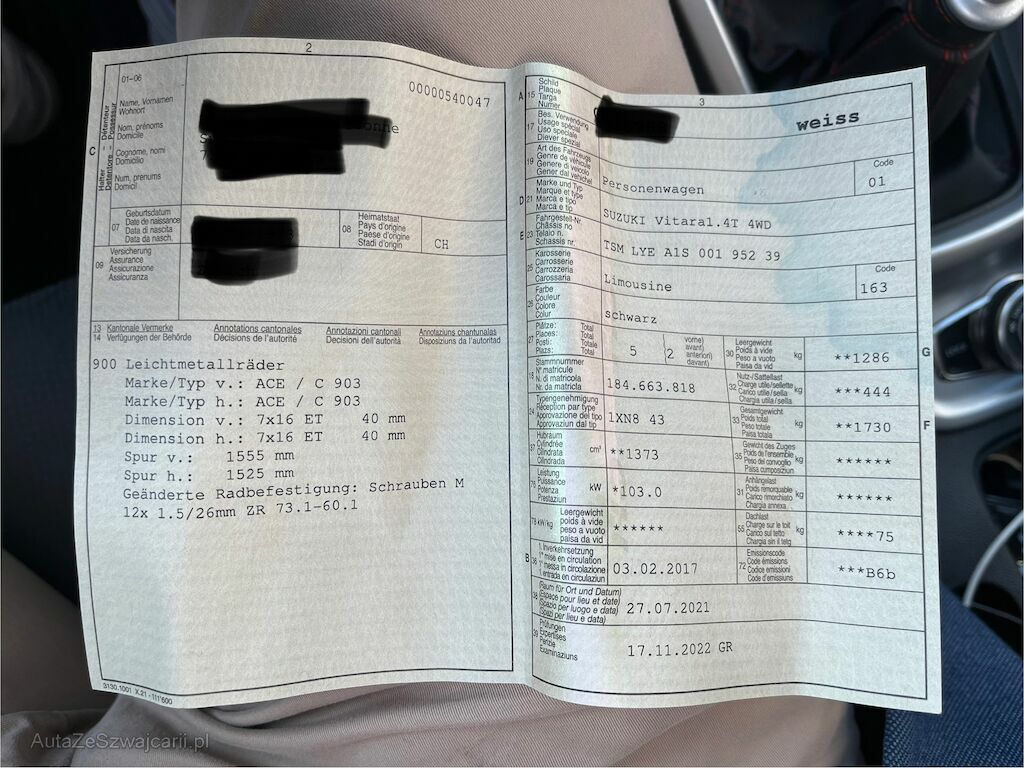 2
01-06
00000540047
Détenteur Possesseur
Halter Detentore
C
Name, Vornamen
Wohnort
Nom, prénoms
Domicile
Cognome, nomi
Domicilio
Num, prenums
Domicil
07
Geburtsdatum
Date de naissance
Data di nascita
Data da nasch.
08
Heimatstaat
Pays d'origine
Paese d'origine
Stadi d'origin
CH
09
Versicherung
Assurance
Assicurazione
Assicuranza
13 Kantonale Vermerke
14 Verfügungen der Behörde
Annotations cantonales
Décisions de l'autorité
Annotazioni cantonali
Decisioni dell'autorità
Annotaziuns chantunalas
Disposiziuns da l'autoritad
900 Leichtmetallräder
Marke/Typ v.: ACE / C 903
Marke/Typ h.: ACE / C 903
Dimension v.: 7x16 ET 40 mm
Dimension h.: 7x16 ET 40 mm
Spur v.: 1555 mm
Spur h.: 1525 mm
Geänderte Radbefestigung: Schrauben M
12x 1.5/26mm ZR 73.1-60.1
3130.1001 X.21 - 111'600
3
A 15
Schild
Plaque
Targa
Numer
weiss
17
Bes. Verwendung
Usage spécial
Uso speciale
Diever spezial
19
Art des Fahrzeugs
Genre de véhicule
Genere di veicolo
Gener dal vehichel
Personenwagen
Code
01
D 21
Marke und Typ
Marque et type
Marca e tipo
Marca e tip
SUZUKI Vitara1.4T 4WD
E 23
Fahrgestell-Nr.
Châssis no
Telaio n.
Schassis nr.
TSM LYE A1S 001 952 39
25
Karosserie
Carrosserie
Carrozzeria
Carossaria
Limousine
Code
163
26
Farbe
Couleur
Colore
Colur
schwarz
27
Plätze: Total
Places: Total
Posti: Totale
Plazs: Total
5
2
vorne)
avant)
anteriori)
davant)
30
Leergewicht
Poids à vide
Peso a vuoto
Paisa da vid
kg
**1286
G
18
Stammnummer
N° matricule
N. di matricola
Nr. da matricla
184.663.818
32
Nutz-/Sattellast
Charge utile/sellette
Carico utile/sella
Chargia utila/sella
kg
***444
24
Typengenehmigung
Réception par type
Approvazione del tipo
Approvaziun dal tip
1XN8 43
33
Gesamtgewicht
Poids total
Peso totale
Paisa totala
kg
**1730
F
37
Hubraum
Cylindrée
Cilindrata
Cilindrada
cm³
**1373
35
Gewicht des Zuges
Poids de l'ensemble
Peso del convoglio
Paisa composiziun
kg
******
76
Leistung
Puissance
Potenza
Prestaziun
kW
*103.0
31
Anhängelast
Poids remorquable
Carico rimorchiato
Chargia annexa
kg
******
78 kW/kg
Leergewicht
poids à vide
peso a vuoto
paisa da vid
******
55
Dachlast
Charge sur le toit
Carico sul tetto
Chargia sin il tetg
kg
****75
B 36
1. Inverkehrsetzung
1re mise en circulation
1a messa in circolazione
1. entrada en circulaziun
03.02.2017
72
Emissionscode
Code émissions
Codice emissioni
Code d'emissiuns
***B6b
38
(Raum für Ort und Datum)
(Espace pour lieu et date)
(Spazio per luogo e data)
(Spazi per lieu e data)
27.07.2021
39
Prüfungen
Expertises
Perizie
Examinaziuns
17.11.2022 GR
AutaZeSzwajcarii.pl